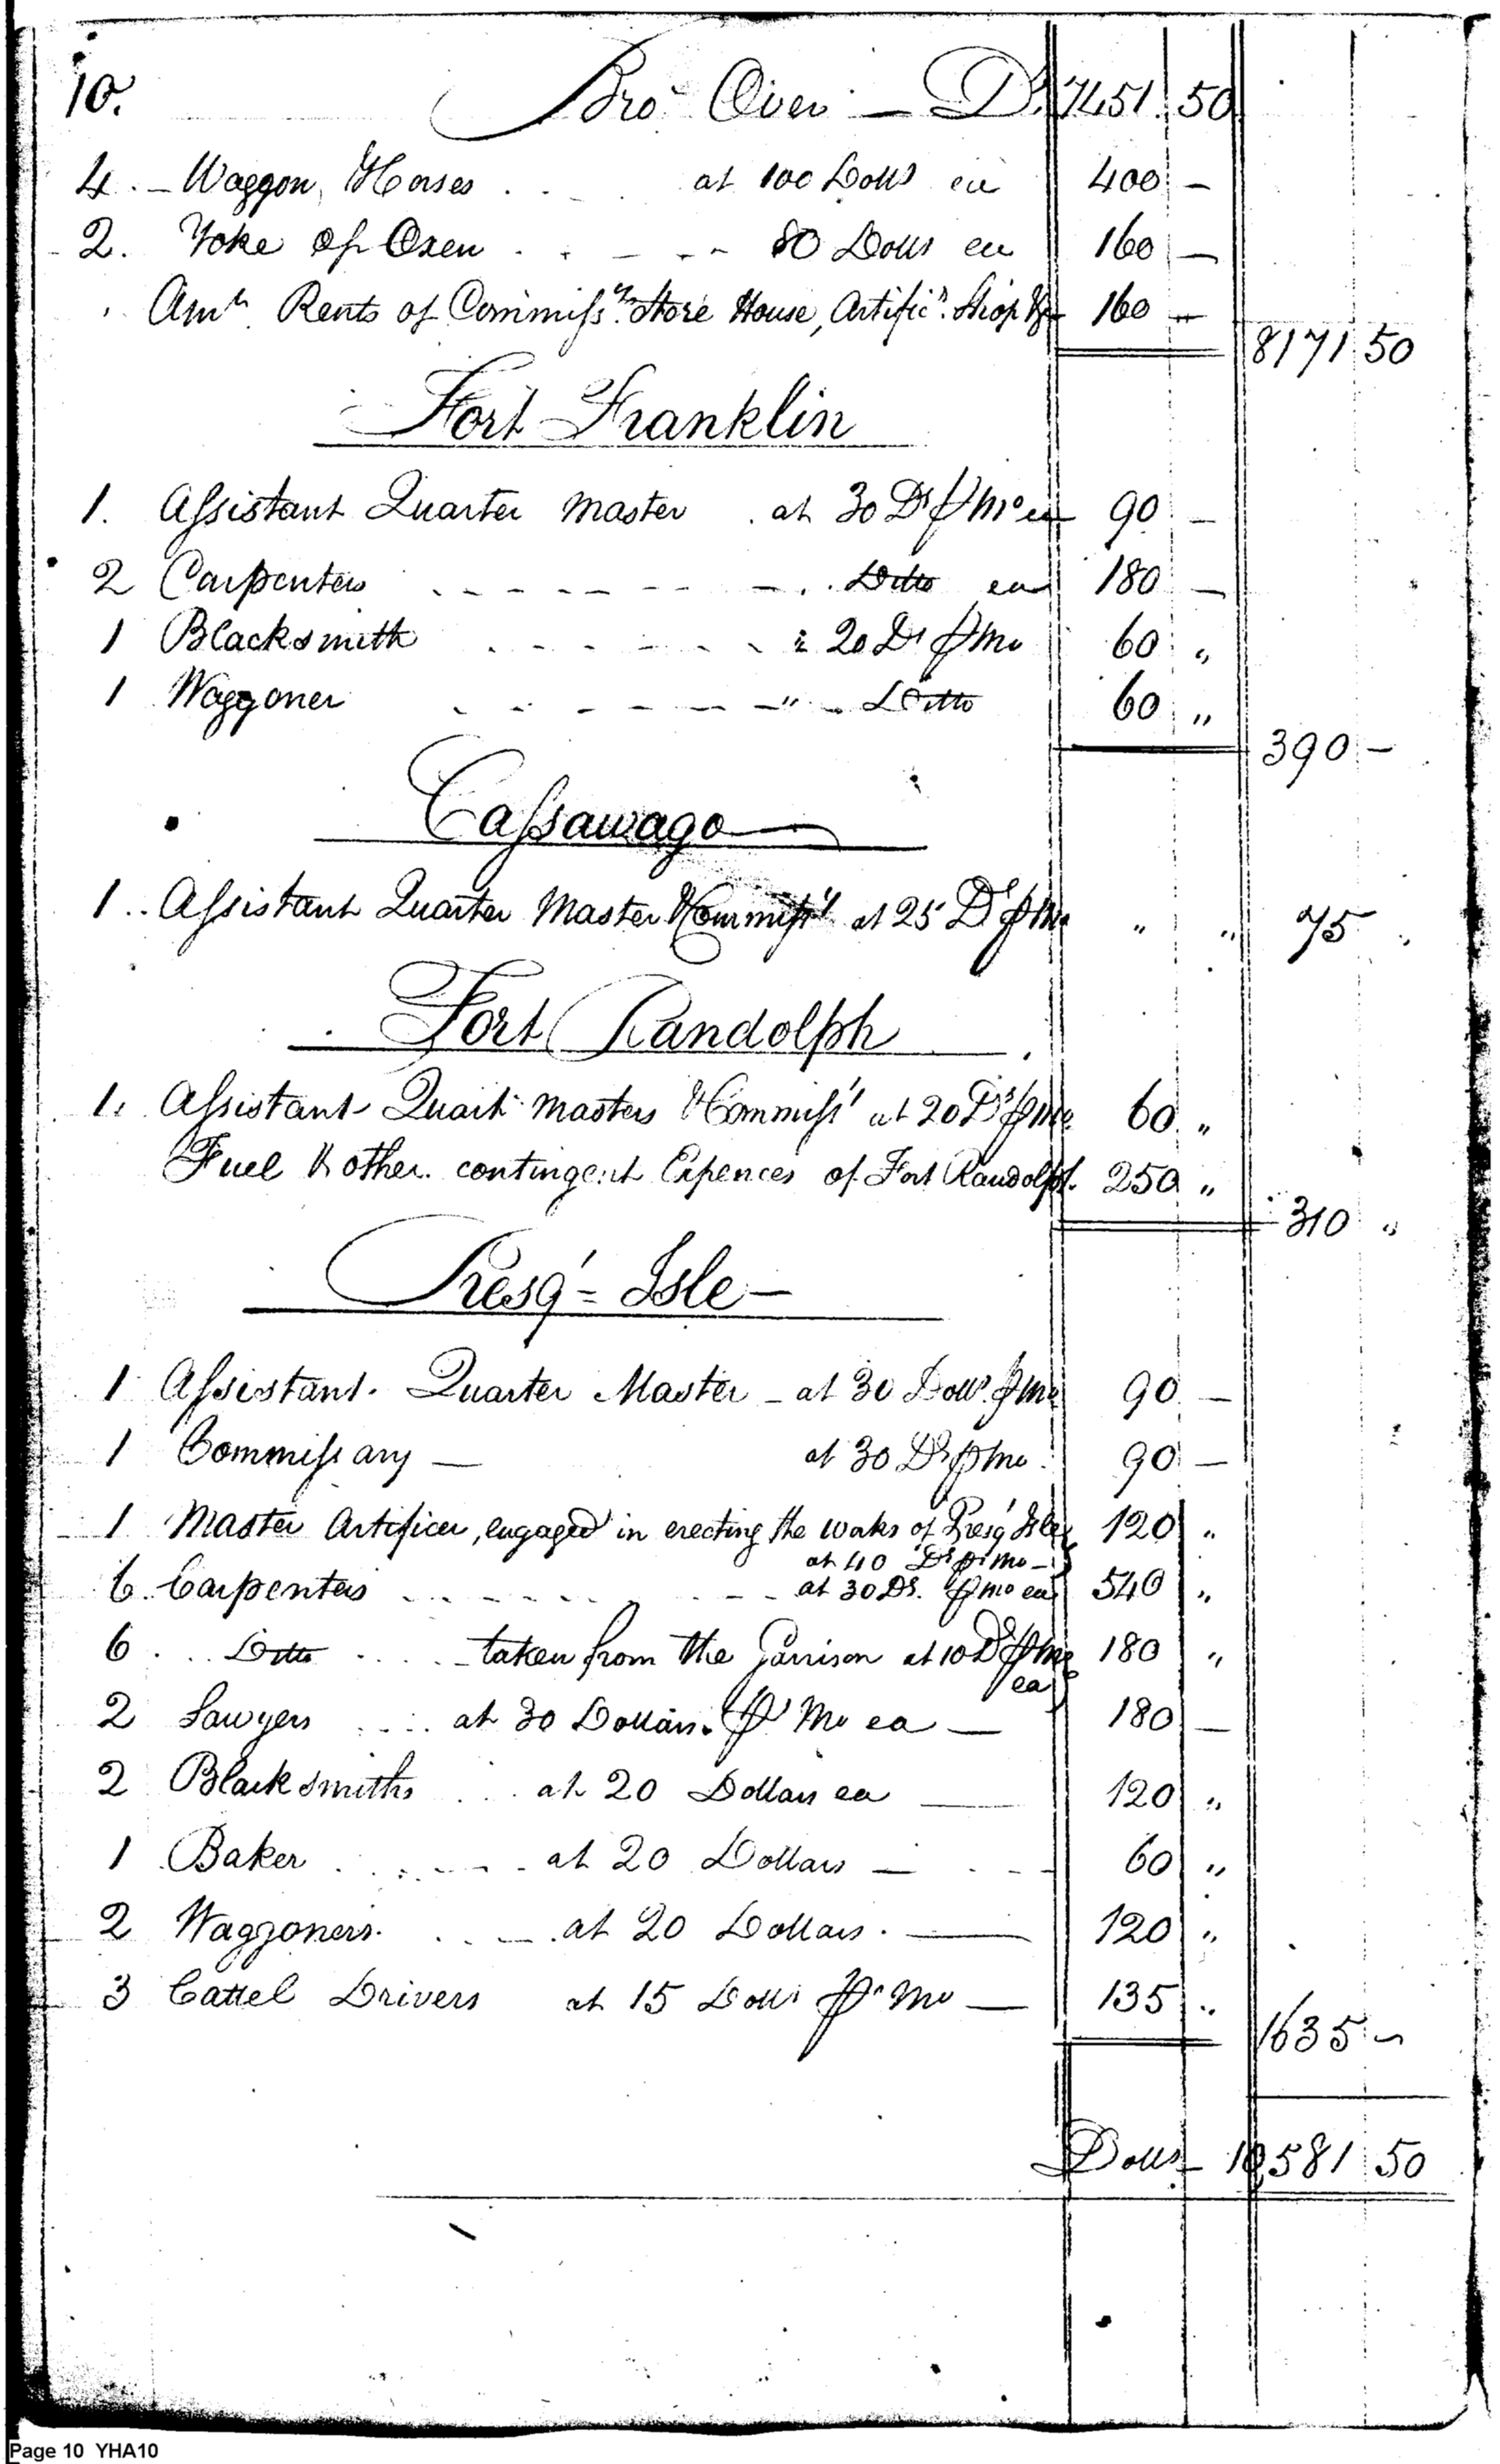 10.
Bro.t Over — D.s 7451 50
4. — Waggon Horses . . at 100 Dolls ea 400 —
2. Yoke of Oxen . . — . - 80 Dolls ea 160 —
Am.t Rents of Commiss.ys Store House, Artific.rs Shop &c 160 —
8171 50
Fort Franklin
1. Assistant Quarter Master . at 30 D.s ⅌ Mo ea 90 —
2 Carpenters - - - - - - - . Ditto ea 180 —
1 Blacksmith - - - - - - 20 D.s ⅌ Mo 60 "
1 Waggoner - - - - - - " - Ditto 60 "
390 —
Cassawago
1 .. Assistant Quarter Master & Commiss.y at 25 D.s ⅌ Mo " " 75 "
Fort Randolph
1. Assistant Quart.r Masters & Commiss.y at 20 D.s ⅌ Mo 60 "
Fuel & other contingent Expences of Fort Randolph. 250 "
310 "
Presq' = Isle —
1 Assistant Quarter Master — at 30 Doll.s ⅌ Mo 90 —
1 Commissary — at 30 D.s ⅌ Mo 90 —
1 Master Artificer, engaged in erecting the works of Presq' Isle 120 "
at 40 D.s ⅌ Mo —
6 . Carpenters - - - - - - - at 30 Ds. ⅌ Mo ea 540 "
6 . . Ditto . . . . - taken from the Garrison at 10 D.s ⅌ Mo 180 "
ea
2 Sawyers . . . . at 30 Dollars ⅌ Mo ea — 180 —
2 Blacksmiths . . . at 20 Dollars ea — 120 "
1 Baker . . . - - - at 20 Dollars — . - - 60 "
2 Waggoners . . . — . at 20 Dollars . — 120 "
3 Cattel Drivers at 15 Dolls ⅌ Mo — 135 "
1635 —
Dolls — 10,581 50
Page 10 YHA10